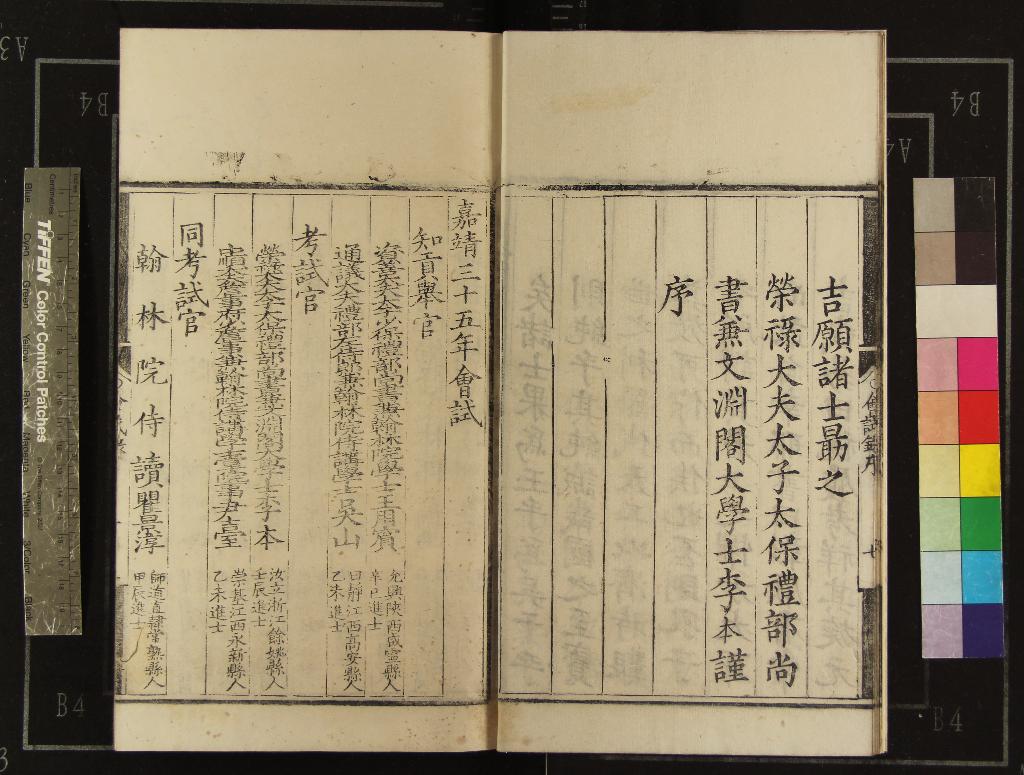 吉願諸士勗之
榮祿大夫太子太保禮部尚
書兼文淵閣大學士李本謹
序
嘉靖三十五年會試
知貢舉官
資善大夫太子少保禮部尚書兼翰林院學士王用賓
允興陝西咸寧縣人
辛巳進士
通議大夫禮部左侍郎兼翰林院侍讀學士吳山
曰靜江西高安縣人
乙未進士
考試官
榮祿大夫太子太保禮部尚書兼文淵閣大學士李本
汝立浙江餘姚縣人
壬辰進士
詹事府少詹事兼翰林院侍講學士掌院事尹臺
崇基江西永新縣人
乙未進士
同考試官
翰林院侍讀瞿景淳
師道直隸常熟縣人
甲辰進士
會試錄序
Tiffen Color Control Patches
Centimetres
Blue
Cyan
Green
Yellow
3/Color
Black
A3
B4
B4
A4
B4
B4